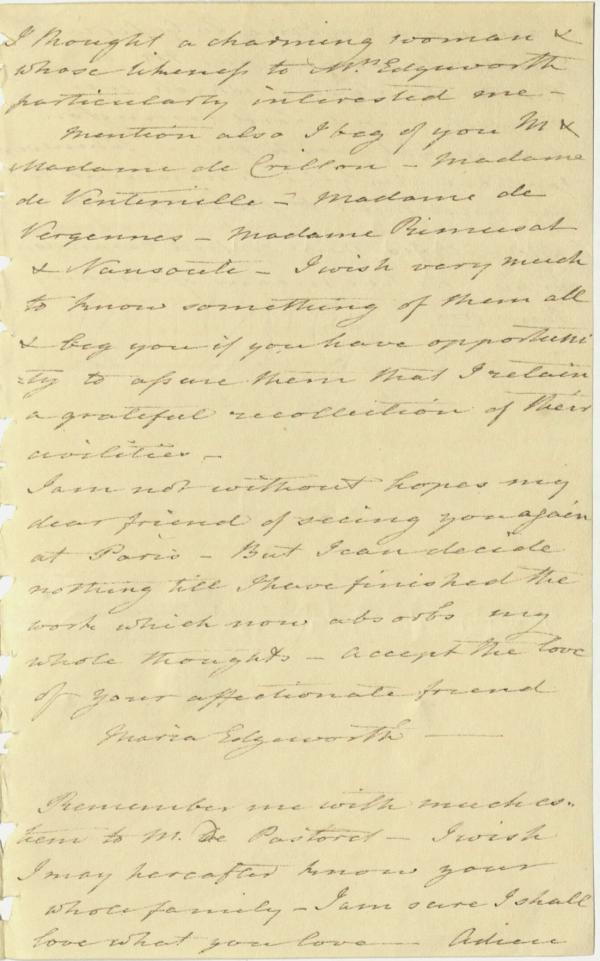 I thought a charming woman &
whose likeness to Mrs. Edgeworth
particularly interested me –
Mention also I beg of you M &
Madame de Crillon – Madame
de Ventimille – Madame de
Vergennes – Madame Remusat
& Nansouti – I wish very much
to know something of them all
& beg you if you have opportuni
=ty to assure them that I retain
a grateful recollection of their
civilities –
I am not without hopes my
dear friend of seeing you again
at Paris – But I can decide
nothing till I have finished the
work which now absorbs my
whole thoughts – accept the love
of your affectionate friend
Maria Edgeworth ——
Remember me with much es=
teem to M. De Pastoret – I wish
I may hereafter know your
whole family – I am sure I shall
love what you love — Adieu